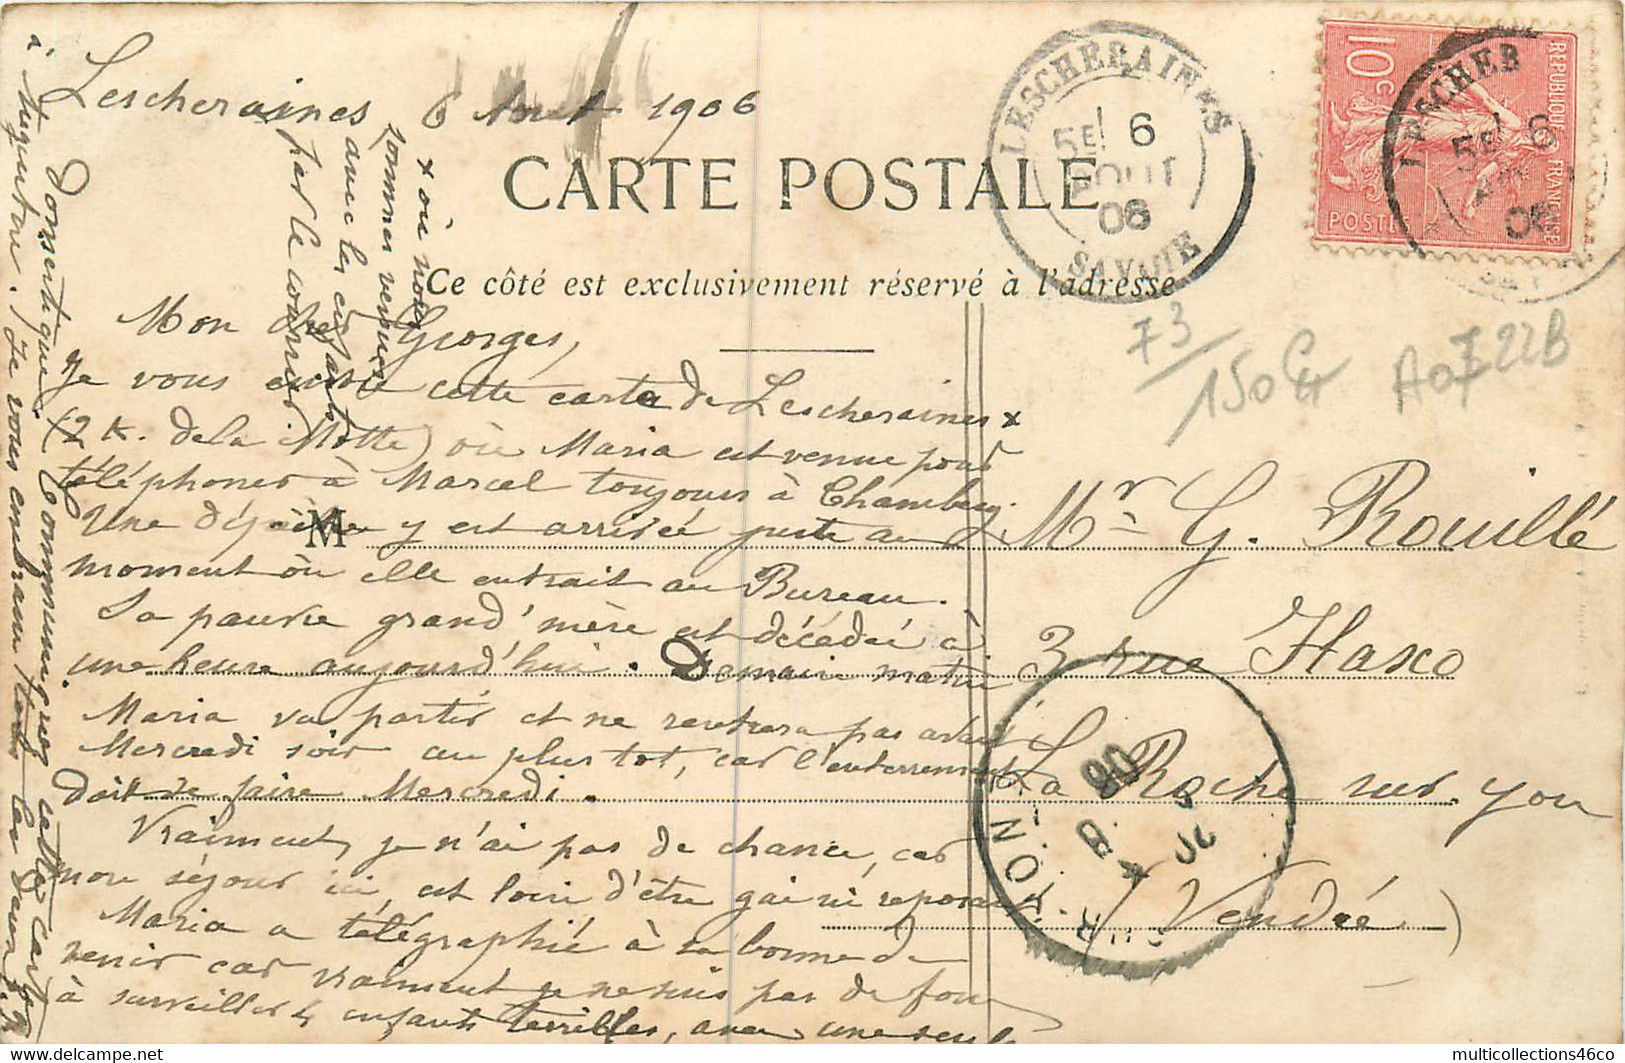 Lescheraines 6 Août 1906
CARTE POSTALE
Ce côté est exclusivement réservé à l'adresse
LESCHERAINES
5E 6
AOUT
06
SAVOIE
10c
REPUBLIQUE FRANÇAISE
POSTES
LESCHER
5E 6
06
73/150 A0722B
Mon cher Georges,
Je vous écris cette carte de Lescheraines x
(2 K. de la Motte) où Maria est venue pour
téléphoner à Marcel toujours à Chambéry.
Une dépêche y est arrivée juste au
M
moment où elle entrait au Bureau.
Sa pauvre grand'mère est décédée à
une heure aujourd'hui. Demain matin
Maria va partir et ne rentrera pas avant
Mercredi soir au plus tot, car l'enterrement
doit se faire Mercredi.
Vraiment, je n'ai pas de chance, car
mon séjour ici, est loin d'être gai ni reposant
Maria a télégraphié à sa bonne de
venir car vraiment je ne suis pas de force
à surveiller 4 enfants terribles, avec une seule
x où nous
sommes venues
avec les enfants
par le courrier
donsentique. Communiquez cette carte
à Augustine. Je vous embrasse tous les deux. R
Mr G. Rouillé
3 rue Haxo
La Roche sur Yon
(Vendée)
SUR-YON
8
06
multicollections46co